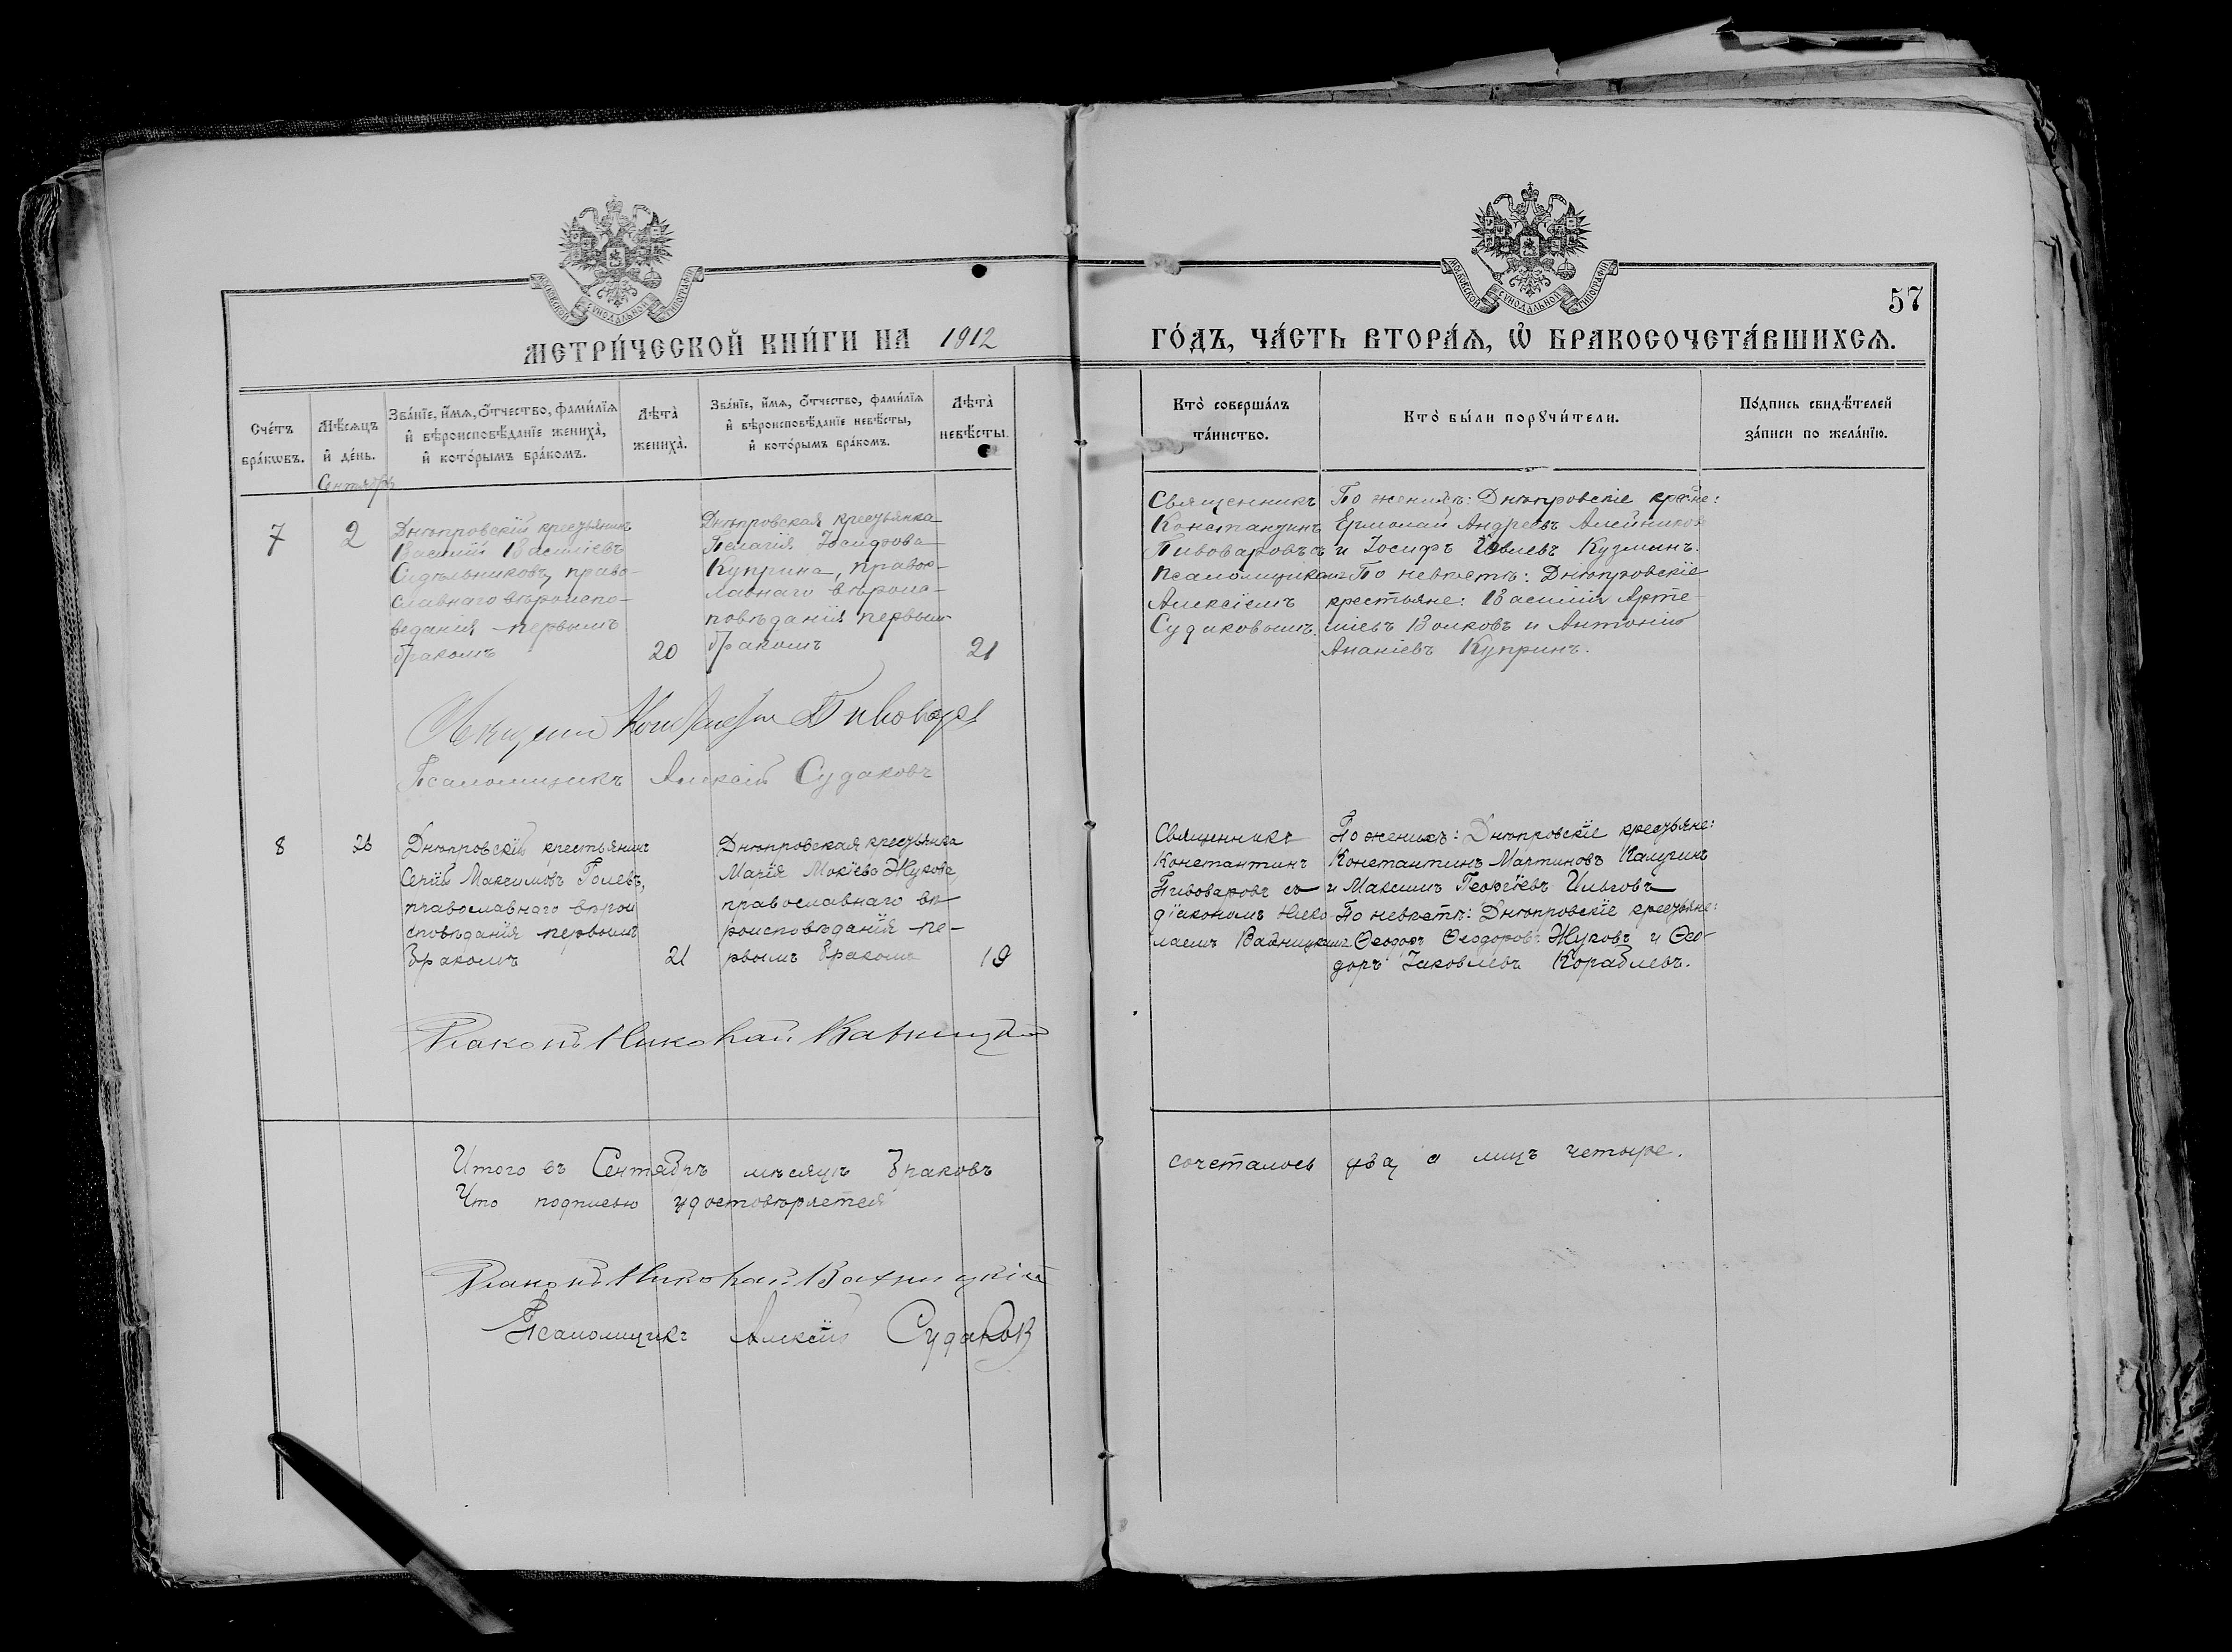 МОСКОВСКОЙ СѴНОДАЛЬНОЙ ТИПОГРАФІИ
МОСКОВСКОЙ СѴНОДАЛЬНОЙ ТИПОГРАФІИ
57
МЕТРИ́ЧЕСКОЙ КНИ́ГИ НА 1912
ГО́ДЪ, ЧА́СТЬ ВТОРА́Ѧ, Ѽ БРАКОСОЧЕТА́ВШИХСѦ.
Сче́тъ
бра́кѡвъ.
Мѣ́сѧцъ
и҆ де́нь.
Зва́нїе, и҆́мѧ, ѻ҆́тчество, фами́лїѧ
и҆ вѣроисповѣ́данїе жениха̀,
и҆ кото́рымъ бра́комъ.
Лѣ́та̀
жениха̀.
Зва́нїе, и҆́мѧ, ѻ҆́тчество, фами́лїѧ
и҆ вѣроисповѣ́данїе невѣ́сты,
и҆ кото́рымъ бра́комъ.
Лѣ́та̀
невѣ́сты.
Кто̀ соверша́лъ
та́инство.
Кто̀ бы́ли порꙋчи́тели.
По́дпись свидѣ́телей
за́писи по жела́нїю.
Сентябрь
7
2
Днѣпровскій крестьянинъ
Василій Василіевъ
Сидѣльниковъ, право-
славнаго вѣроиспо-
веданія первымъ
бракомъ
20
Днѣпровская крестьянка
Пелагія Іосифова
Куприна, правос-
лавнаго вѣроис-
повѣданія первым
бракомъ
21
Священникъ
Константинъ
Пивоваровъ съ
Псаломщиком
Алексіемъ
Судаковымъ.
По женихѣ: Днѣпровскіе крестьяне:
Ермолай Андреевъ Алейников
и Іосифъ Іовлевъ Кузминъ.
По невѣстѣ: Днѣпровскіе
крестьяне: Василій Арте-
міевъ Волковъ и Антоній
Ананіевъ Купринъ.
Священ Константин Пивоваров
Псаломщикъ Алексій Судаковъ
8
23
Днѣпровскій крестьянинъ
Сергій Максимовъ Голевъ,
православнаго вѣрои
сповѣданія первымъ
бракомъ
21
Днѣпровская крестьянка
Марія Мокіева Жукова
православнаго вѣ-
роисповѣданія пе-
рвымъ бракомъ
19
Священникъ
Константинъ
Пивоваровъ съ
діакономъ Нико-
лаемъ Вахницким
По женихѣ: Днѣпровскіе крестьяне:
Константинъ Мартиновъ Калугинъ
и Максимъ Георгіевъ Ильговъ
По невѣстѣ: Днѣпровскіе крестьяне:
Ѳеодоръ Ѳеодоровъ Жуковъ и Ѳео-
доръ Іаковлевъ Кораблевъ.
Діаконъ Николай Вахницкій
Итого въ Сентябрѣ мѣсяцѣ браковъ
сочеталось два, а лицъ четыре.
Что подписью удостовѣряется
Діаконъ Николай Вахницкій
Псаломщикъ Алексій Судаков